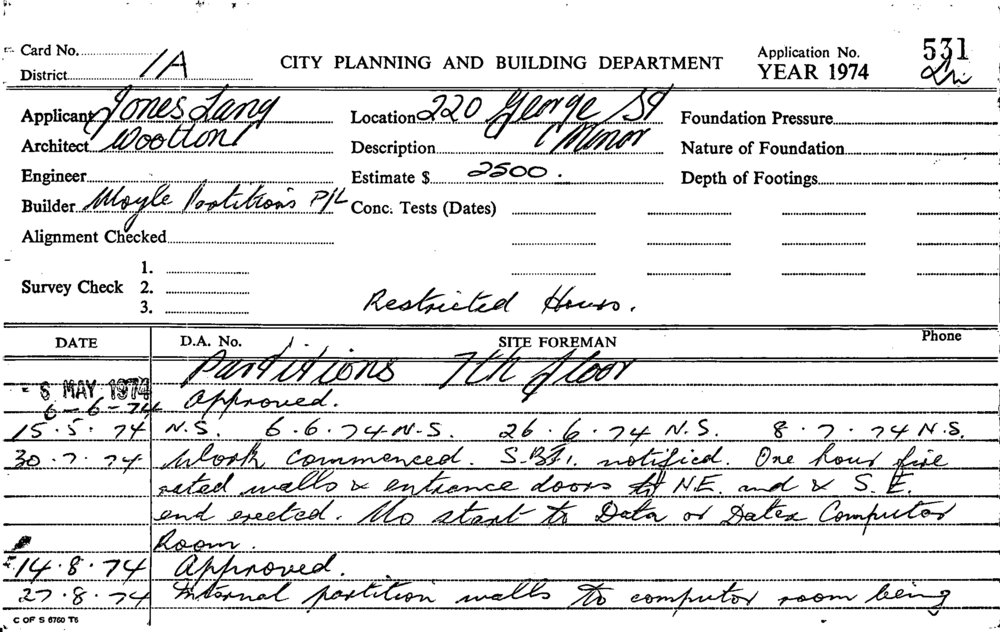 Card No.
District 1A
CITY PLANNING AND BUILDING DEPARTMENT
Application No. 531
YEAR 1974
Applicant Jones Lang
Location 220 George St
Foundation Pressure
Architect Wootton
Description Minor
Nature of Foundation
Engineer
Estimate $ 2500.
Depth of Footings
Builder Moyle Partitions P/L
Conc. Tests (Dates)
Alignment Checked
1.
Survey Check 2.
3.
Restricted Hours.
DATE D.A. No. SITE FOREMAN Phone
Partitions 7th floor
- 6 MAY 1974
6-6-74 Approved.
15.5.74 N.S. 6.6.74 N.S. 26.6.74 N.S. 8.7.74 N.S.
30.7.74 Work commenced. notified. One hour fire
rated walls & entrance doors N.E. and & S.E.
end erected. No start to Data or Datex Computor
Room.
14.8.74 Approved.
27.8.74 Internal partition walls to computor room being
C OF S 6760 T6